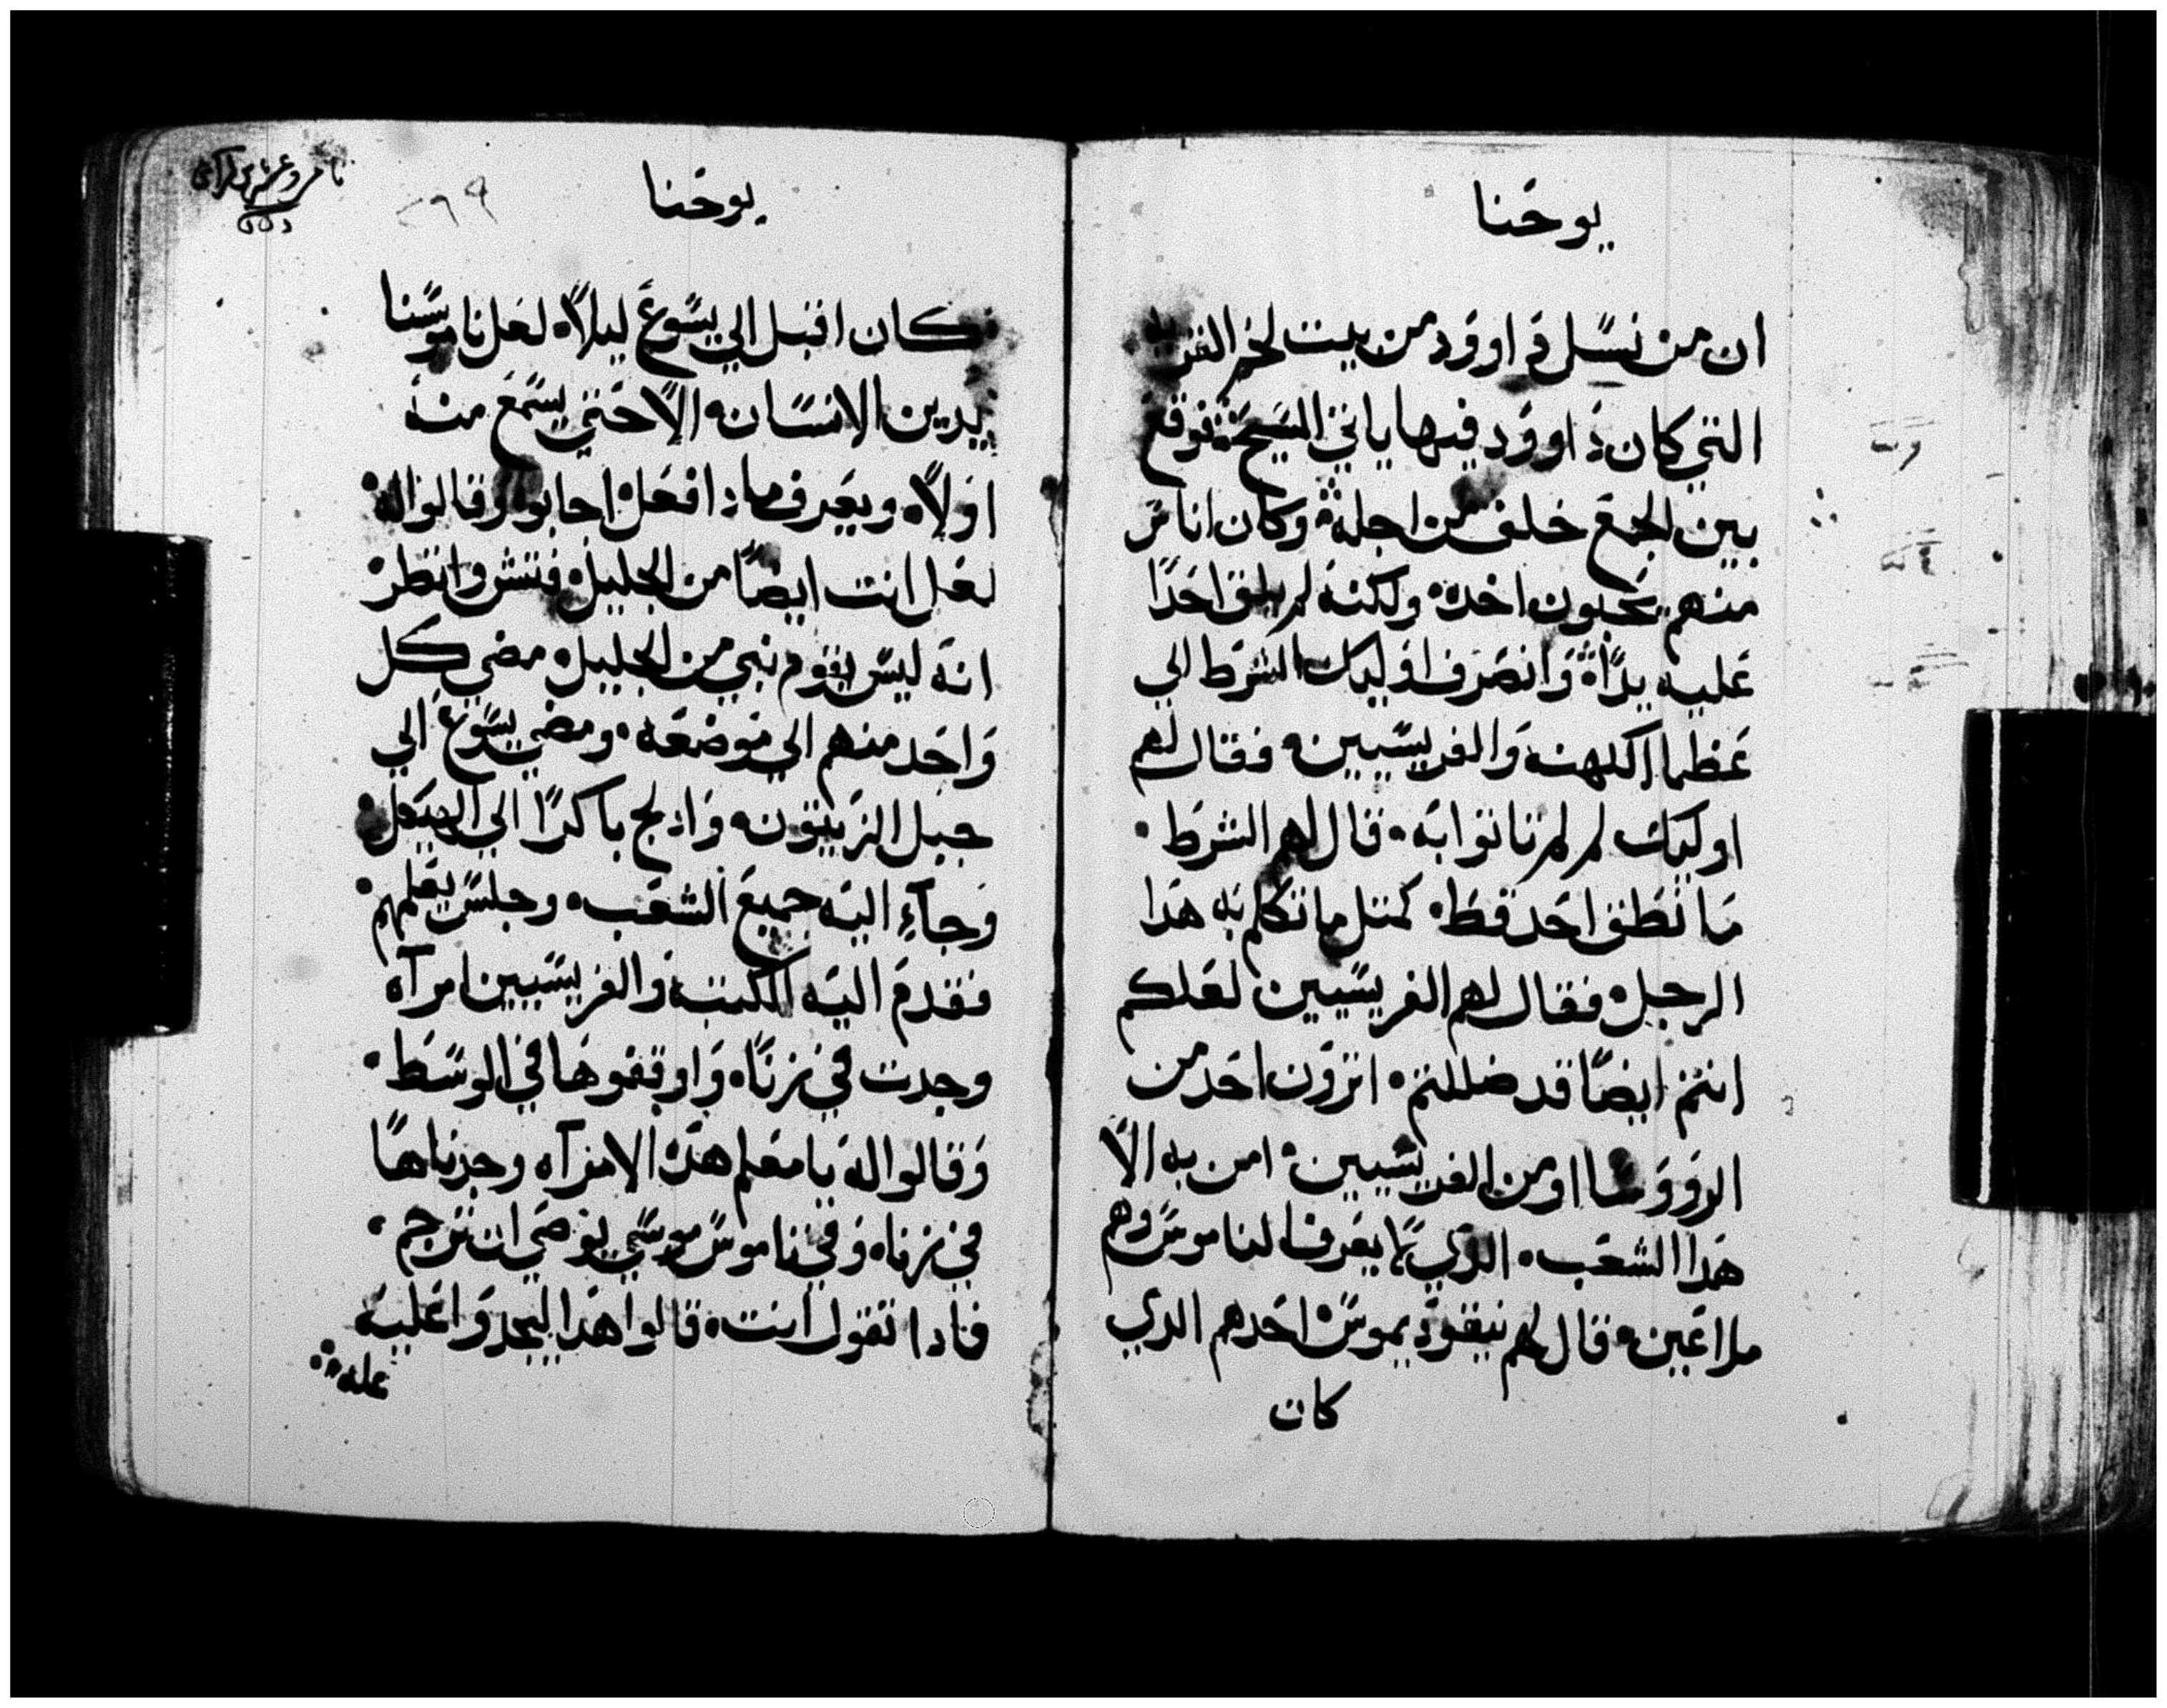 يوحنا
ان من نسل داوود من بيت لحم القريه
التي كان داوود فيها ياتي المسيح فوقع
بين الجمع خلف من اجله وكان اناس
منهم يحبون اخده ولكنه لم يلق احدًا
عليه يدًا وانصرف اوليك الشرط الي
عظما الكهنه والفريسيين فقال لهم
اوليك لم لم تاتوا به قال لهم الشرط
ما نطق احد قط كمتل ما تكلم به هدا
الرجل فقال لهم الفريسيين لعلكم
انتم ايضًا قد ضللتم اترون احد من
الرووسا او من الفريسيين امن به الا
هدا الشعب الدي لا يعرف الناموس وهم
ملاعين قال لهم نيقوديموس احدهم الدي
كان
يوحنا
٢٦٩
كان اقبل الي يسوع ليلاً لعل ناموسنا
يدين الانسان الا حتي يسمع منه
اولاً ويعرف مادا فعل اجابوا وقالوا له
لعل انت ايضًا من الجليل فتش وانظر
انه ليس يقوم نبي من الجليل مضي كل
واحد منهم الي موضعه ومضي يسوع الي
جبل الزيتون وادلج باكرًا الي الهيكل
وجاء اليه جميع الشعب وجلس يعلمهم
فقدم اليه الكتبه والفريسيين امرآه
وجدت في زناه واوقفوها في الوسط
وقالوا له يا معلم هده الامرآه وجدناها
في زناه وفي ناموس موسي يوصي ان ترجم
فادا تقول انت قالوا هدا ليجدوا عليه
عله